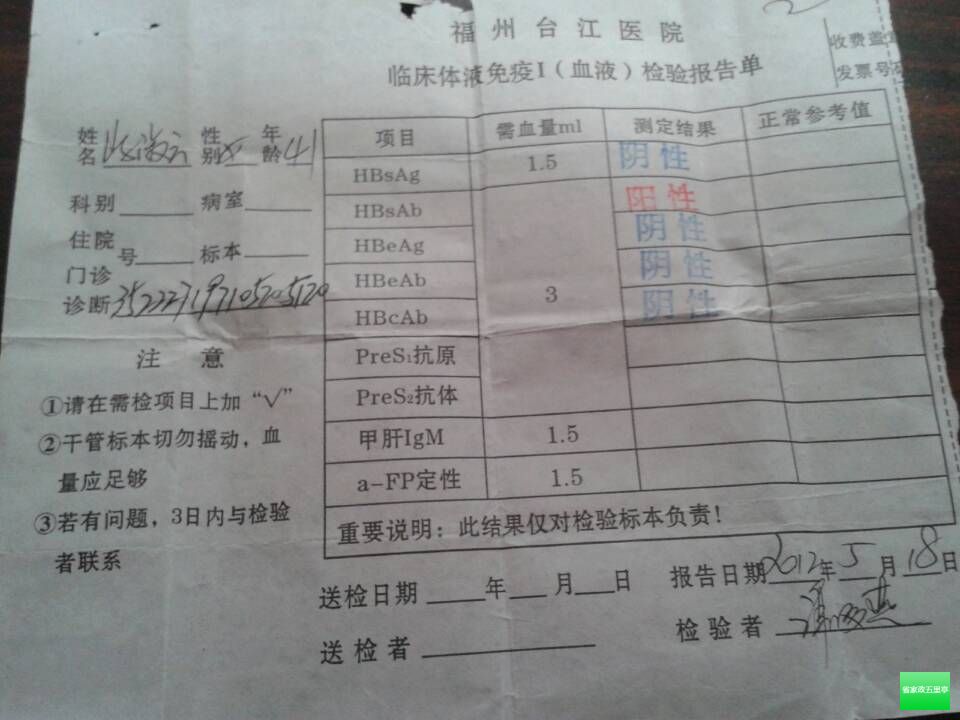 福州台江医院
临床体液免疫I（血液）检验报告单
收费盖
发票号
姓名 性别 年龄 41
科别 病室
住院号 标本
门诊
诊断 352227197105205120
注意
①请在需检项目上加“√”
②干管标本切勿摇动，血
量应足够
③若有问题，3日内与检验
者联系
项目 需血量ml 测定结果 正常参考值
HBsAg 1.5 阴性
HBsAb 阳性
HBeAg 阴性
HBeAb 3 阴性
HBcAb 阴性
PreS₁抗原
PreS₂抗体
甲肝IgM 1.5
a-FP定性 1.5
重要说明：此结果仅对检验标本负责！
送检日期 年 月 日 报告日期 2012年 5 月 18 日
送检者 检验者
省家政五里亭